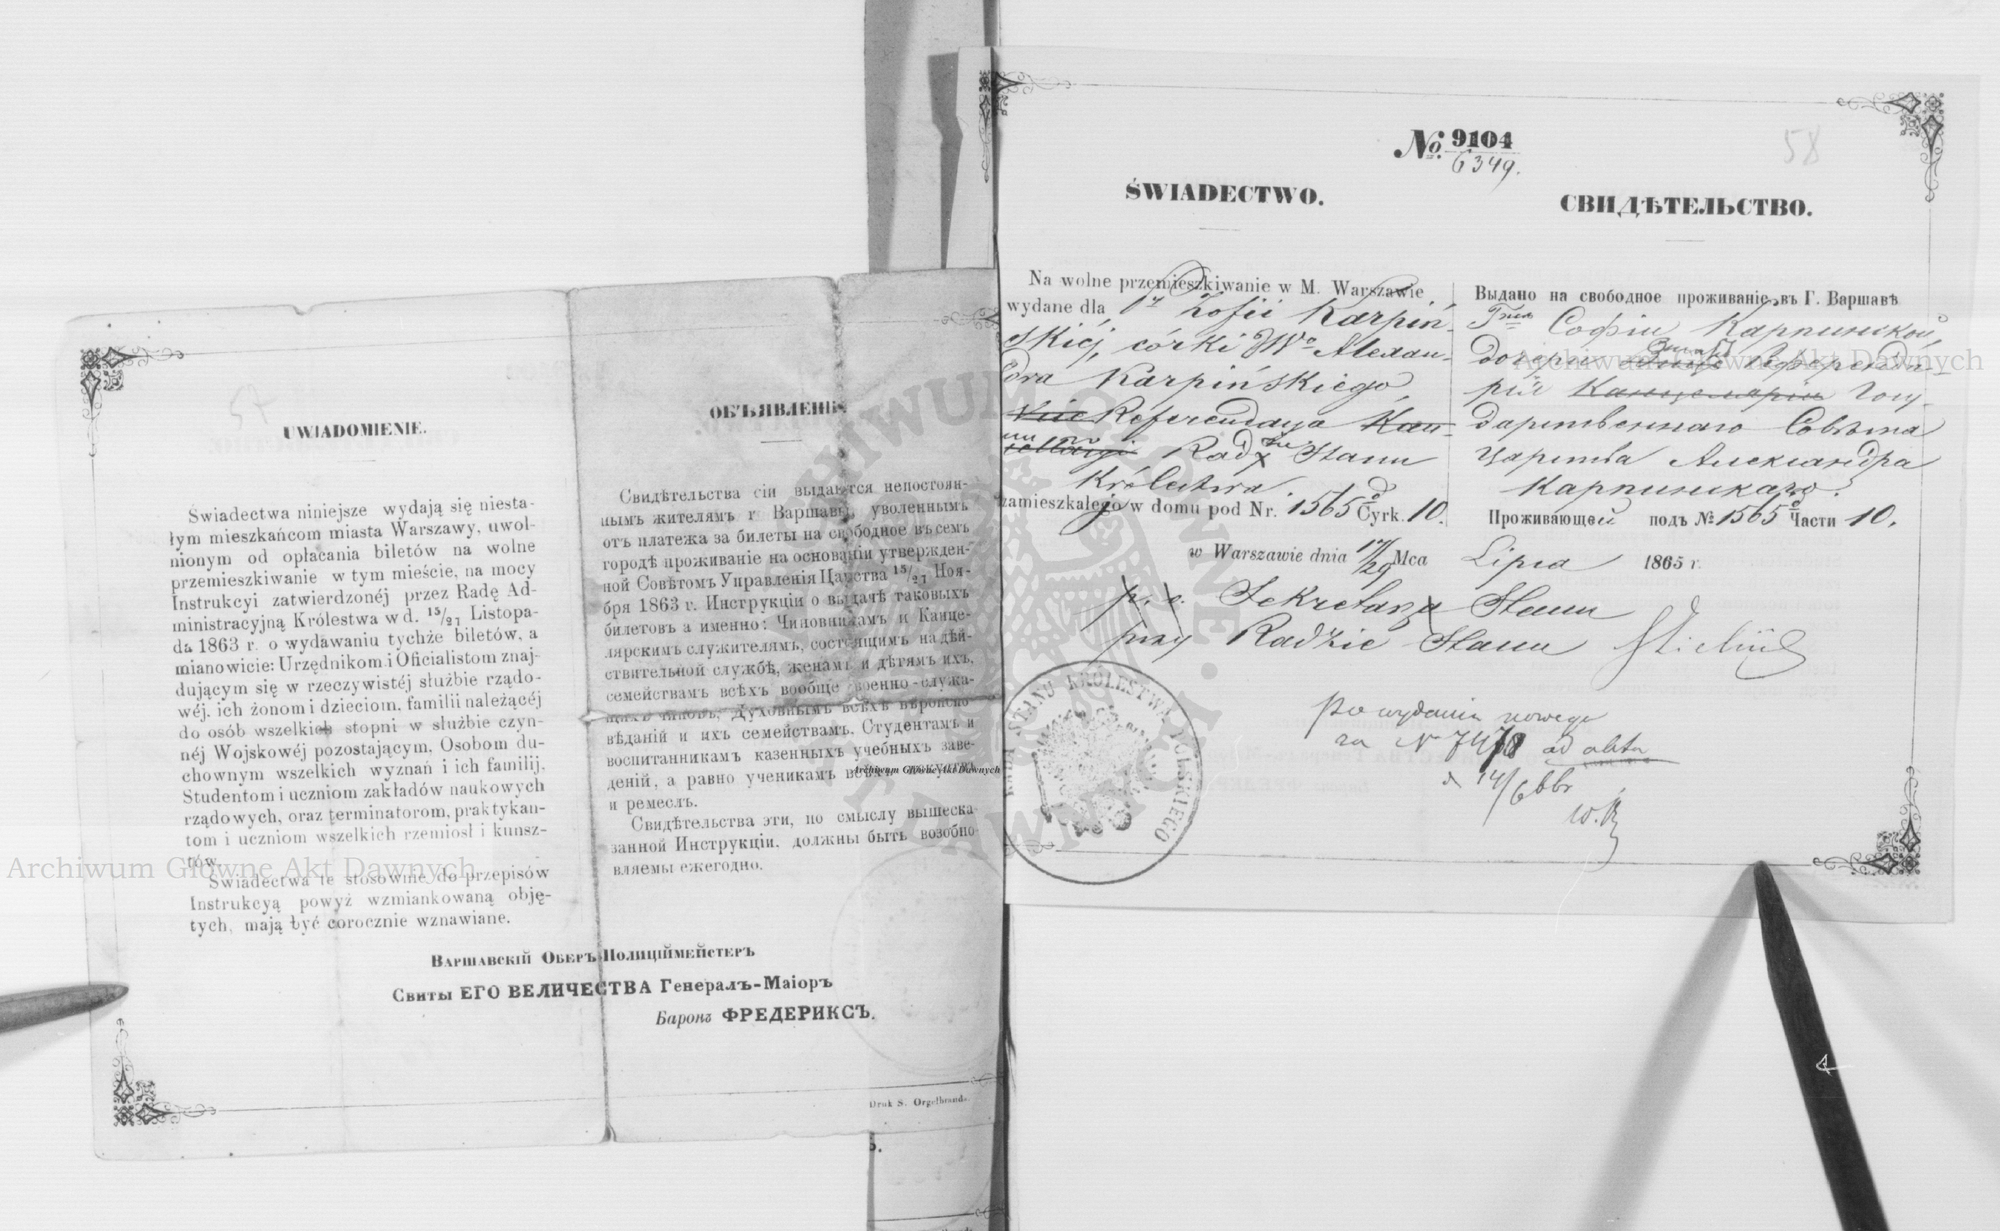 57
UWIADOMIENIE.
Świadectwa niniejsze wydają się niesta-
łym mieszkańcom miasta Warszawy, uwol-
nionym od opłacania biletów na wolne
przemieszkiwanie w tym mieście, na mocy
Instrukcyi zatwierdzonéj przez Radę Ad-
ministracyjną Królestwa w d. 15/27 Listopa-
da 1863 r. o wydawaniu tychże biletów, a
mianowicie: Urzędnikom i Oficialistom znaj-
dującym się w rzeczywistéj służbie rządo-
wéj, ich żonom i dzieciom, familii należącéj
do osób wszelkich stopni w służbie czyn-
néj Wojskowéj pozostającym, Osobom du-
chownym wszelkich wyznań i ich familij,
Studentom i uczniom zakładów naukowych
rządowych, oraz terminatorom, praktykan-
tom i uczniom wszelkich rzemiosł i kunsz-
tów.
Świadectwa te stosownie do przepisów
Instrukcyą powyż wzmiankowaną obję-
tych, mają być corocznie wznawiane.
ОБЪЯВЛЕНІЕ
Свидѣтельства сіи выдаются непостоян-
нымъ жителямъ г Варшавы, уволеннымъ
отъ платежа за билеты на свободное въ семъ
городѣ проживаніе на основаніи утвержден-
ной Совѣтомъ Управленія Царства 15/27 Ноя-
бря 1863 г. Инструкціи о выдачѣ таковыхъ
билетовъ а именно: Чиновникамъ и Канце-
лярскимъ служителямъ, состоящимъ на дѣй-
ствительной службѣ, женамъ и дѣтямъ ихъ,
семействамъ всѣхъ вообще военно-служа-
щихъ чиновъ, Духовнымъ всѣхъ вѣроиспо-
вѣданій и ихъ семействамъ, Студентамъ и
воспитанникамъ казенныхъ учебныхъ заве-
деній, а равно ученикамъ всѣхъ искуствъ
и ремеслъ.
Свидѣтельства эти, по смыслу вышеска-
занной Инструкціи, должны быть возобно-
вляемы ежегодно.
Варшавскій Оберъ-Полиціймейстеръ
Свиты ЕГО ВЕЛИЧЕСТВА Генералъ-Маіоръ
Баронъ ФРЕДЕРИКСЪ.
Druk S. Orgelbranda.
58
No. 9104
6349.
ŚWIADECTWO.
Na wolne przemieszkiwanie w M. Warszawie
wydane dla Zofii Karpiń-
skiéj, córki JWo Alexan-
dra Karpińskiego,
Vice Referendarza Kan-
cellaryi Rady Stanu
Królestwa
zamieszkałego w domu pod Nr. 1565 d Cyrk. 10.
СВИДѢТЕЛЬСТВО.
Выдано на свободное проживаніе въ Г. Варшавѣ
Гжѣ Софіи Карпинской,
дочери Референда-
рія Канцеляріи Госу-
дарственнаго Совѣта
Царства Александра
Карпинскаго.
Проживающей подъ № 1565 d Части 10.
w Warszawie dnia 17/29 Mca Lipca 1865 r.
p. o. Sekretarza Stanu
przy Radzie Stanu
RADA STANU KRÓLESTWA POLSKIEGO
Po wydaniu nowego
za N 7478 ad acta
Archiwum Główne Akt Dawnych
Archiwum Główne Akt Dawnych
Archiwum Główne Akt Dawnych
ARCHIWUM GŁÓWNE AKT DAWNYCH